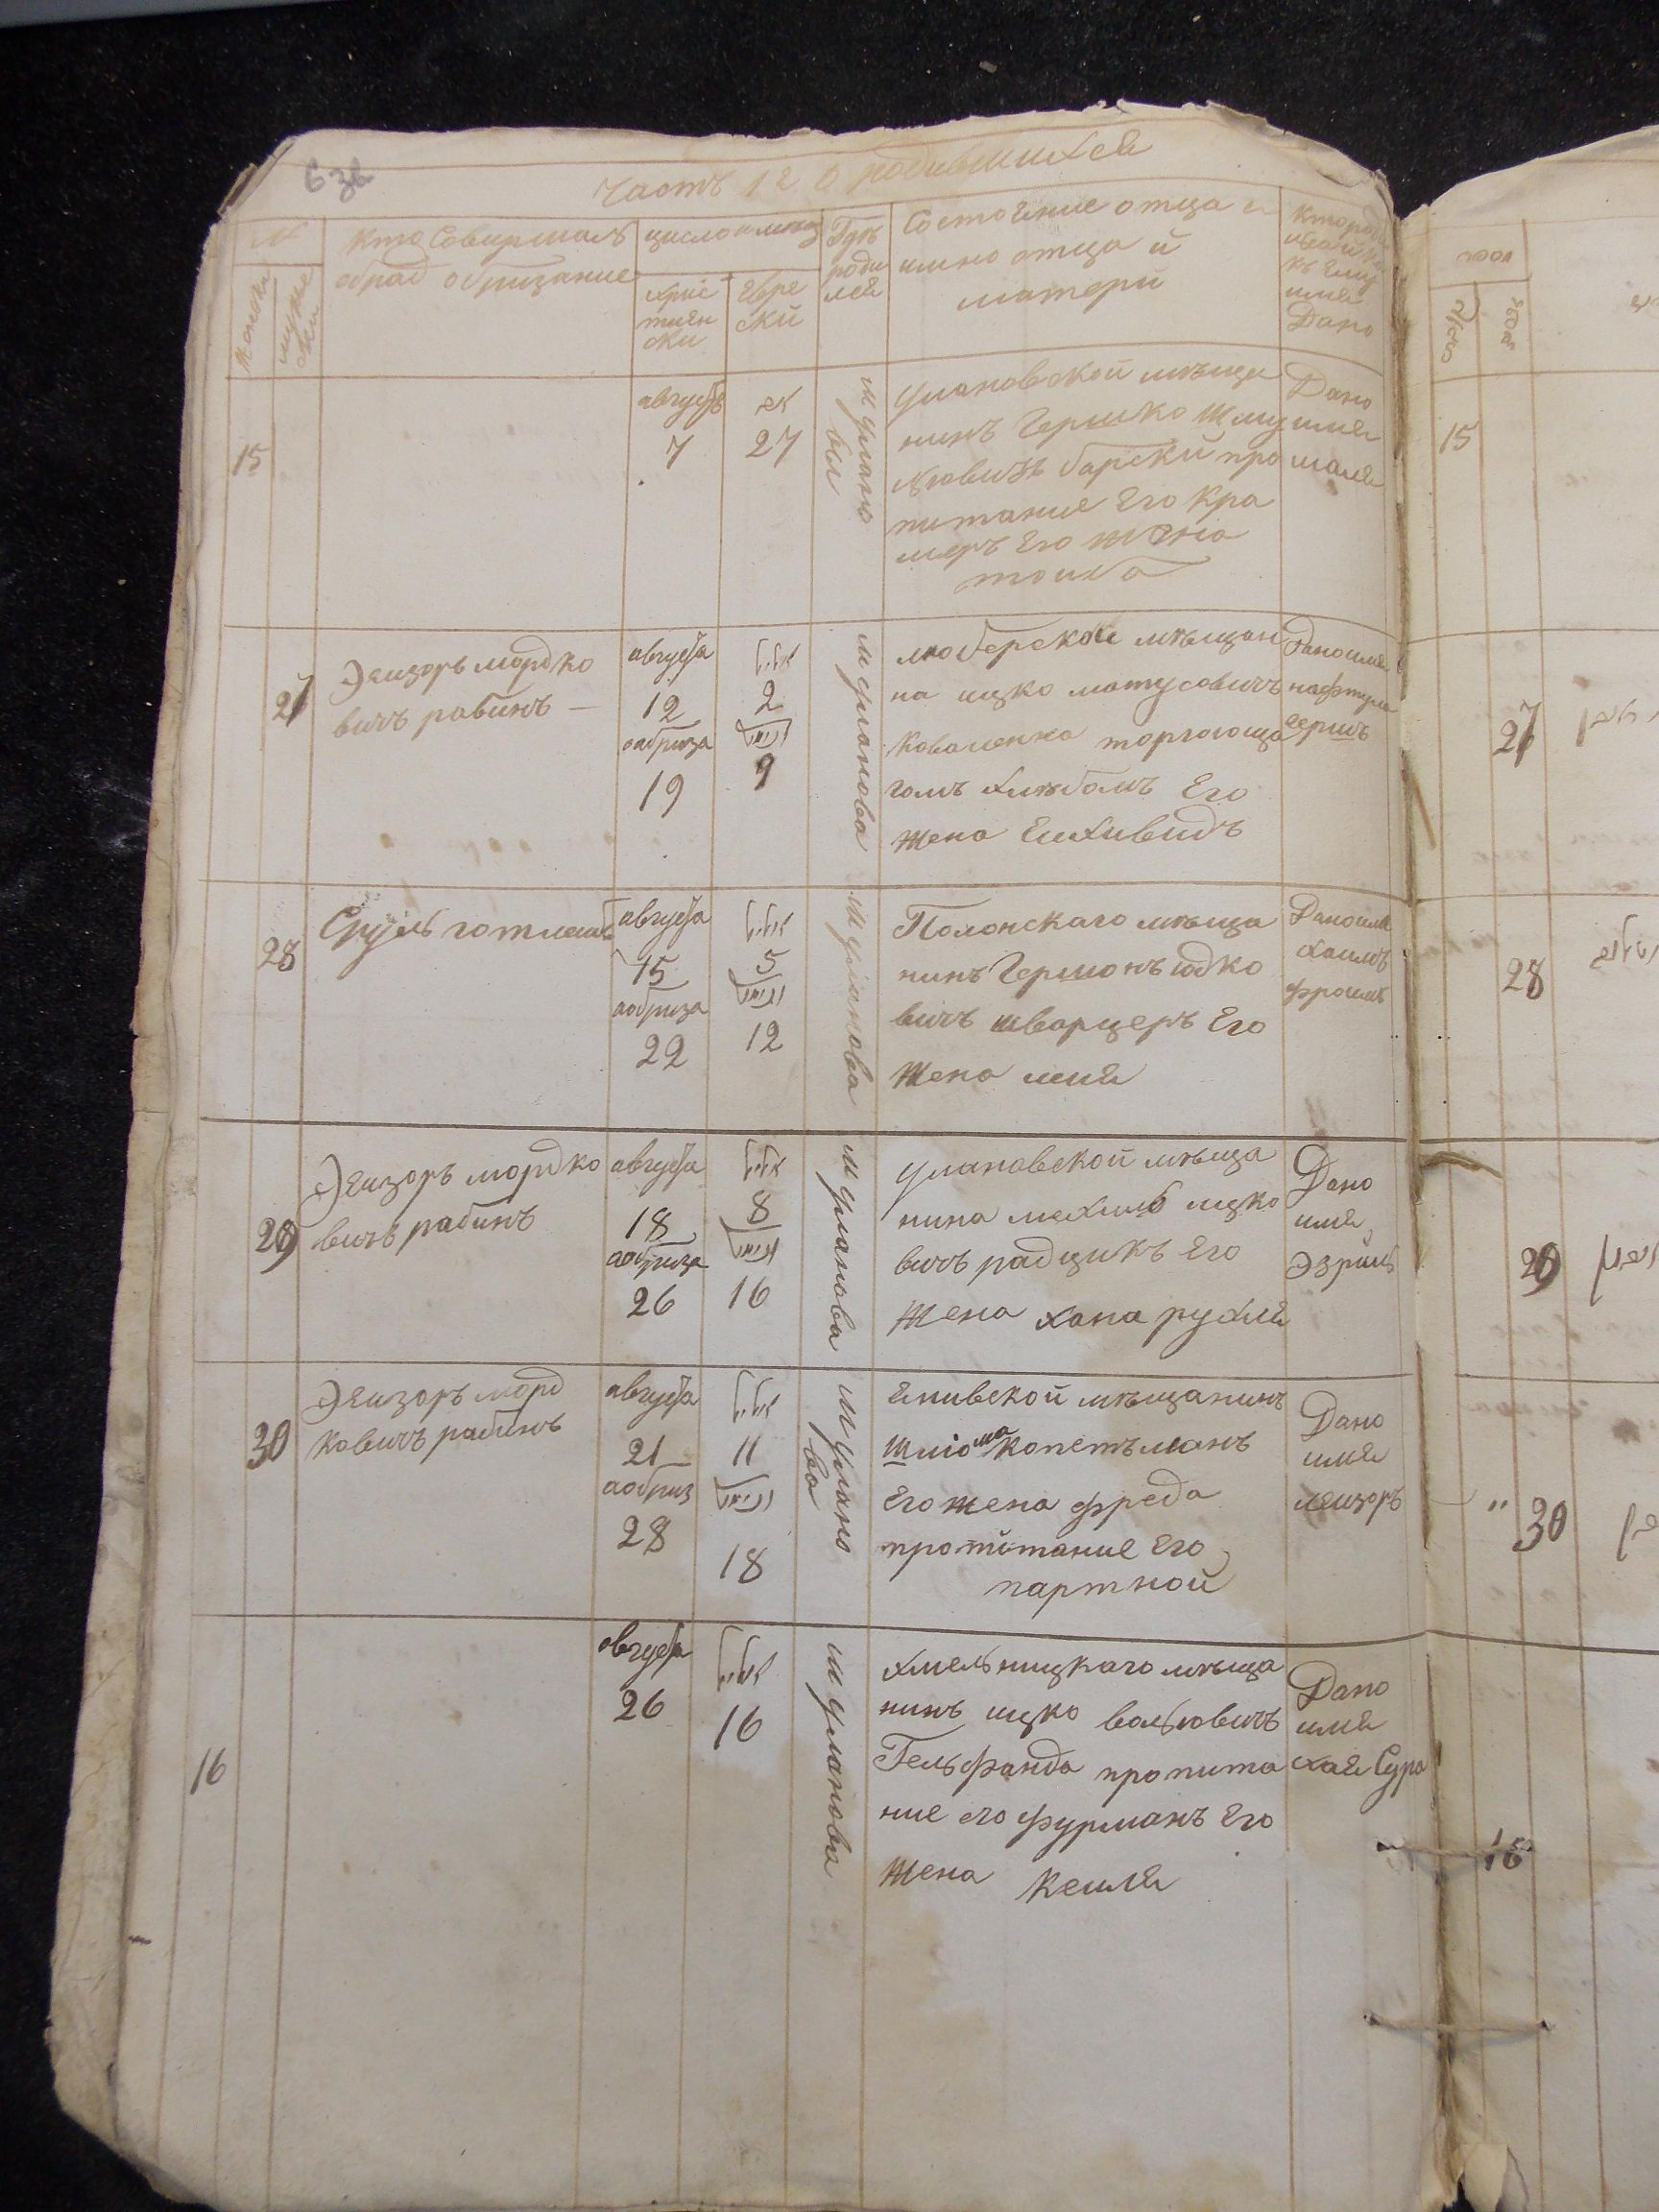 часть 1я о родившихся
№
женски
мужески
кто Совиршалъ
обрад обризание
число и месец
християн
ски
Евре
ский
Гдѣ
роди
лся
Состоение отца и
имно отца й
матери
Дано
15
августъ
7
אב
27
м улано
вы
Улановской мѣща
нинъ Гершко Шму
левичъ барский про
питание Его Кра
меръ Его жена
тойба
Дано
имя
27
Элизоръ мордко
вичъ рабинъ —
августа
12
аобриза
19
אלול
2
9
м уланова
ской мѣщан
на ицко матусовичъ
коваленко торгоюща
гомъ хлѣбомъ Его
жена Ехивидъ
Дано имя
нафтула
Гершъ
28
Сруль готлиб
августа
15
аобриза
22
אלול
5
12
м уланова
Полонскаго мѣща
нинъ Гершонъ юдко
вичъ шварцеръ Его
жена лея
Дано имя
хаимъ
фроимъ
29
Элизоръ мордко
вичъ рабинъ
августа
18
аобриза
26
אלול
8
16
м уланова
улановской мѣща
нина мехиль ицко
вичъ радцикъ Его
жена хана рухля
Дано
имя
Эзриль
30
Элизоръ морд
ковичъ рабинъ
августа
21
аобриз
28
אלול
11
18
м улано
ва
мѣщанинъ
Шліома копетьманъ
Его жена фреда
пропитание Его
партной
Дано
имя
леизоръ
16
августа
26
אלול
16
м уланова
хмельницкаго мѣща
нинъ ицко вольковичъ
Гельфанда пропита
ние его фурманъ Его
жена Кейля
Дано
имя
хая Сура
15
27
28
29
30
16